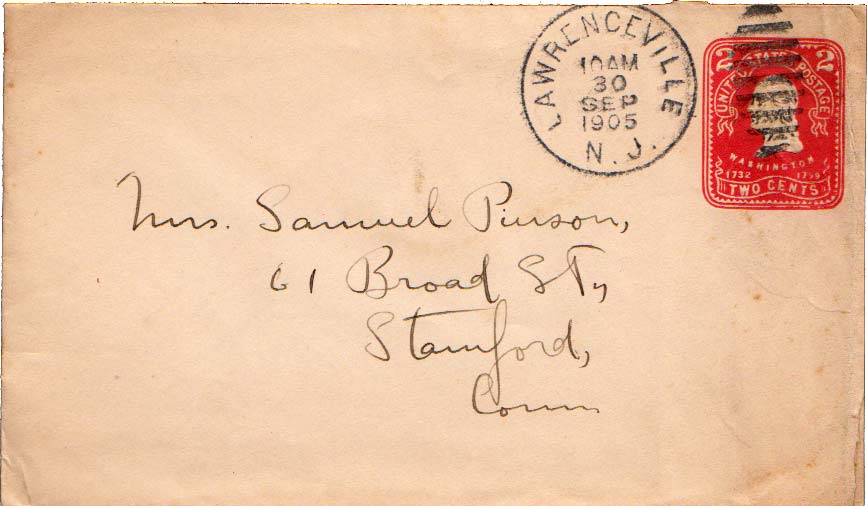 LAWRENCEVILLE
10AM
30
SEP
1905
N.J.
2 2
UNITED STATES POSTAGE
WASHINGTON
1732 1799
TWO CENTS
Mrs. Samuel Pierson,
61 Broad St,
Stamford,
Conn